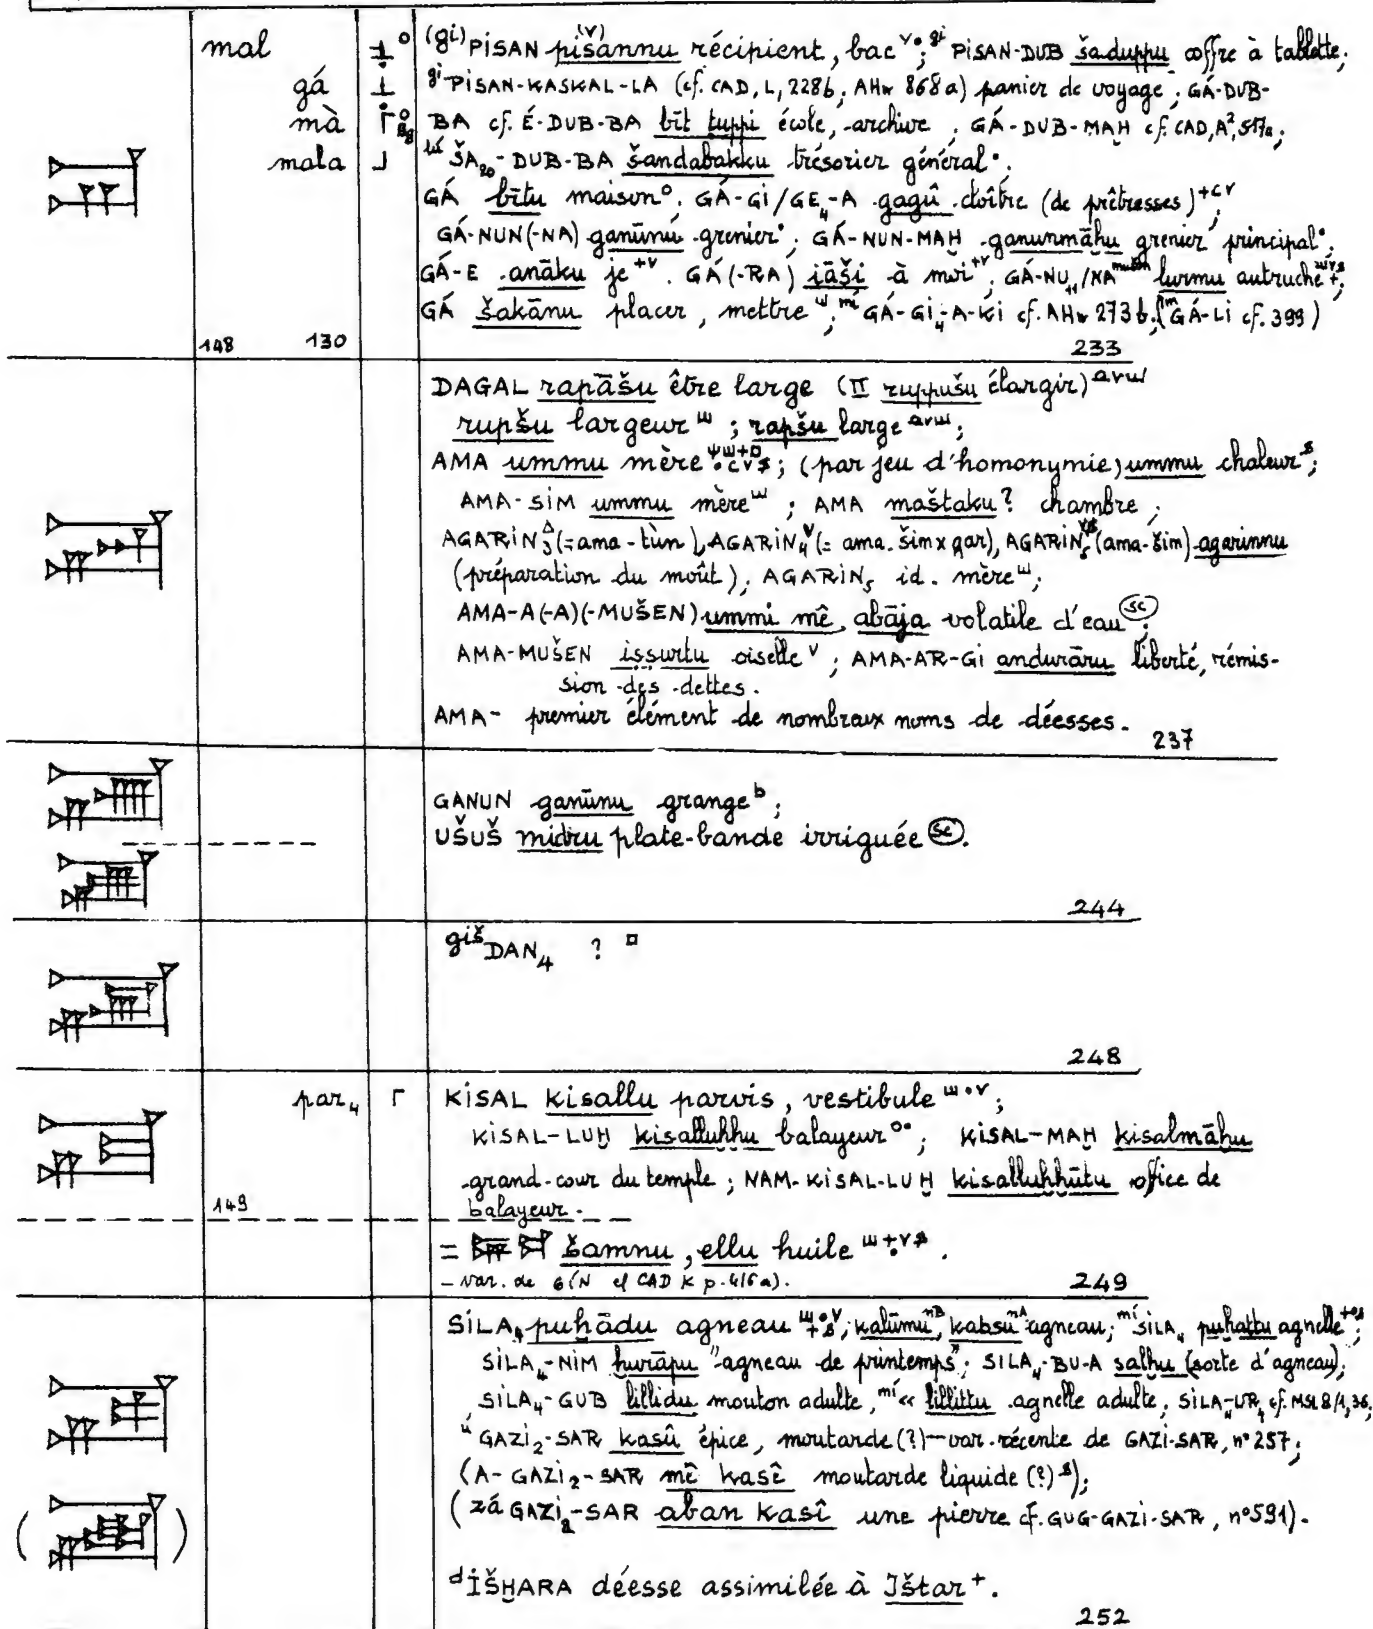 mal
gá
mà
mala
(gi) PISAN pisannu récipient, bac ; gi PISAN-DUB šaduppu coffre à tablette;
gi PISAN-KASKAL-LA (cf. CAD, L, 228b, AHw 868a) panier de voyage ; GÁ-DUB-
BA cf. É-DUB-BA bīt tuppi école, archive ; GÁ-DUB-MAḪ cf. CAD, A²,
lú ŠA₂₀-DUB-BA šandabakku trésorier général.
GÁ bītu maison°. GÁ-GI/GE₄-A gagû cloître (de prêtresses) +cv;
GÁ-NUN(-NA) ganūnu grenier ; GÁ-NUN-MAḪ ganunmāhu grenier principal ;
GÁ-E anāku je +v. GÁ(-RA) iāši à moi +v ; GÁ-NU₁₁/NA mušen lurmu autruche ;
GÁ šakānu placer, mettre ; mí GÁ-GI₄-A-KI cf. AHw 273b. (GÁ-LI cf. 399)
148 130 233
DAGAL rapāšu être large (II ruppušu élargir)
rupšu largeur ; rapšu large ;
AMA ummu mère ; (par jeu d'homonymie) ummu chaleur ;
AMA-SIM ummu mère ; AMA maštaku? chambre ;
AGARIN₃ (= ama-tùn), AGARIN₄ (= ama.šimx gar), AGARIN₅ (ama-šim) agarinnu
(préparation du moût), AGARIN₅ id. mère ;
AMA-A(-A)(-MUŠEN) ummi mê, abāja volatile d'eau (sc) ;
AMA-MUŠEN iṣṣurtu oiselle v ; AMA-AR-GI andurāru liberté, rémis-
sion des dettes.
AMA- premier élément de nombreux noms de déesses.
237
GANUN ganūnu grange b ;
UŠUŠ midru plate-bande irriguée (sc).
244
giš DAN₄ ?
248
par₄ KISAL kisallu parvis, vestibule ;
KISAL-LUḪ kisalluhhu balayeur ; KISAL-MAḪ kisalmāhu
grand-cour du temple ; NAM-KISAL-LUḪ kisalluhhūtu office de
balayeur.
149
= šamnu, ellu huile .
- var. de
249
SILA₄ puhādu agneau ; kalūmu nB, kabsu nA agneau ; mí SILA₄ puhattu agnelle ;
SILA₄-NIM hurāpu "agneau de printemps" ; SILA₄-BU-A salhu (sorte d'agneau) ;
SILA₄-GUB lillidu mouton adulte, mí « lillittu agnelle adulte ; SILA₄-UR₄ cf. MSL 8/1, 36 ;
ú GAZI₂-SAR kasû épice, moutarde (?) – var. récente de GAZI-SAR, n° 257 ;
(A-GAZI₂-SAR mê kasê moutarde liquide (?)) ;
(zá GAZI₂-SAR aban kasî une pierre cf. GUG-GAZI-SAR, n° 591).
d IŠḪARA déesse assimilée à Ištar +.
252